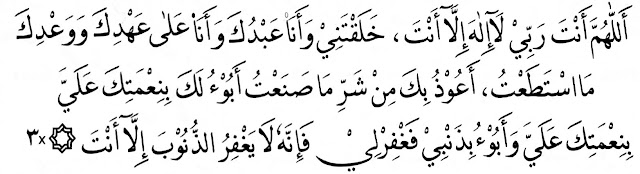 أَللّٰهُمَّ أَنْتَ رَبِّيْ لَآإِلٰهَ إِلَّآ أَنْتَ ، خَلَقْتَنِيْ وَأَنَا۠ عَبْدُكَ وَأَنَا۠ عَلٰى عَهْدِكَ وَوَعْدِكَ
مَااسْتَطَعْتُ، أَعُوْذُ بِكَ مِنْ شَرِّ مَا صَنَعْتُ أَبُوْءُ لَكَ بِنِعْمَتِكَ عَلَيَّ
بِنِعْمَتِكَ عَلَيَّ وَأَبُوْءُ بِذَنْبِيْ فَغْفِرْلِيْ فَإِنَّهٗ لَا يَغْفِرُ الذُّنُوْبَ إِلَّآ أَنْتَ ۞ ×٣